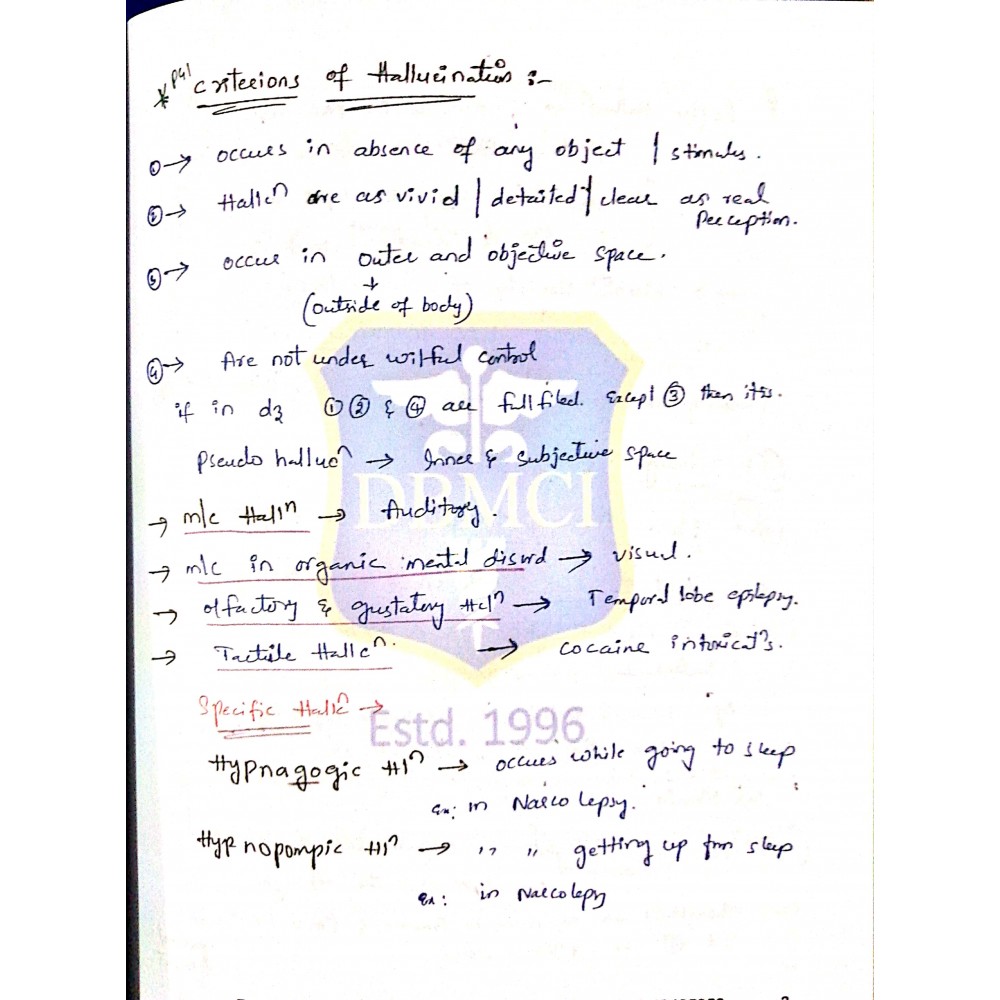 * PGI Criterions of Hallucination :-
①→ occurs in absence of any object / stimulus.
②→ Hallcⁿ are as vivid / detailed / clear as real
Perception.
③→ occur in outer and objective space.
↓
(outside of body)
④→ Are not under wilful control
if in dz ① ② & ④ are fullfiled. Except ③ then its.
Pseudo hallucⁿ → Inner & subjective space
→ m/c Hallⁿ → Auditory.
→ m/c in organic mental disord → visual.
→ olfactory & gustatory Halⁿ → Temporal lobe epilepsy.
→ Tactile Hallcⁿ. → cocaine intoxicatⁿs.
Specific Hallcⁿ →
DBMCI
Estd. 1996
Hypnagogic Hlⁿ → occurs while going to sleep
Ex: in Narcolepsy.
Hypnopompic Hlⁿ → ,, ,, getting up from sleep
Ex: in Narcolepsy